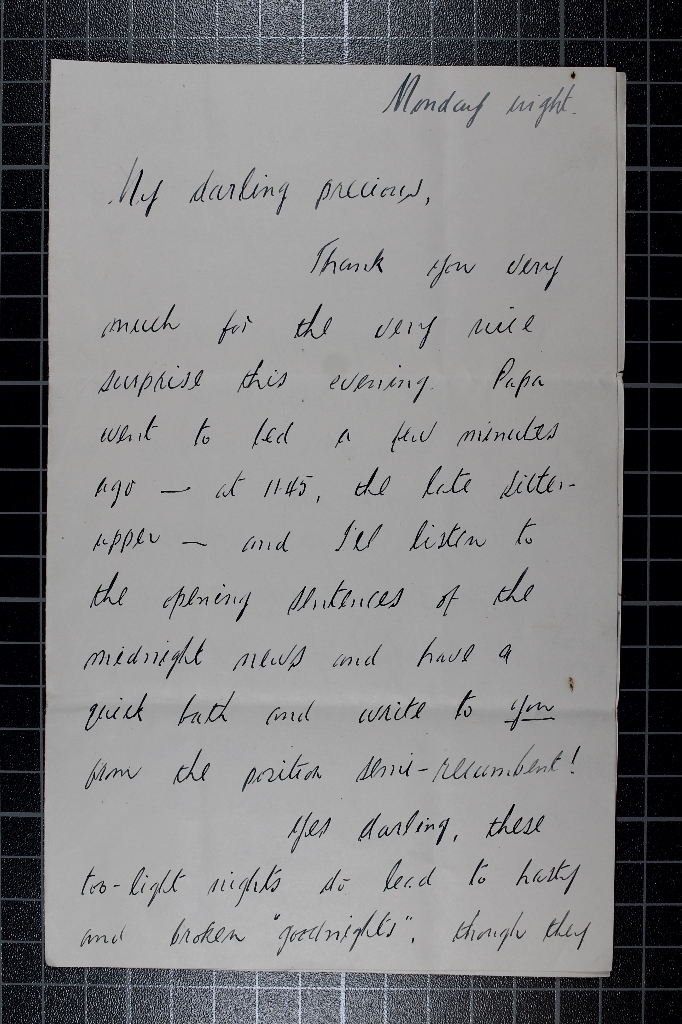 Monday night.
My darling precious,
Thank you very
much for the very nice
surprise this evening. Papa
went to bed a few minutes
ago — at 11.45, the late sitter-
upper — and I'll listen to
the opening sentences of the
midnight news and have a
quick bath and write to you
from the position semi-recumbent!
Yes darling, these
too-light nights do lead to hasty
and broken "goodnights", though they